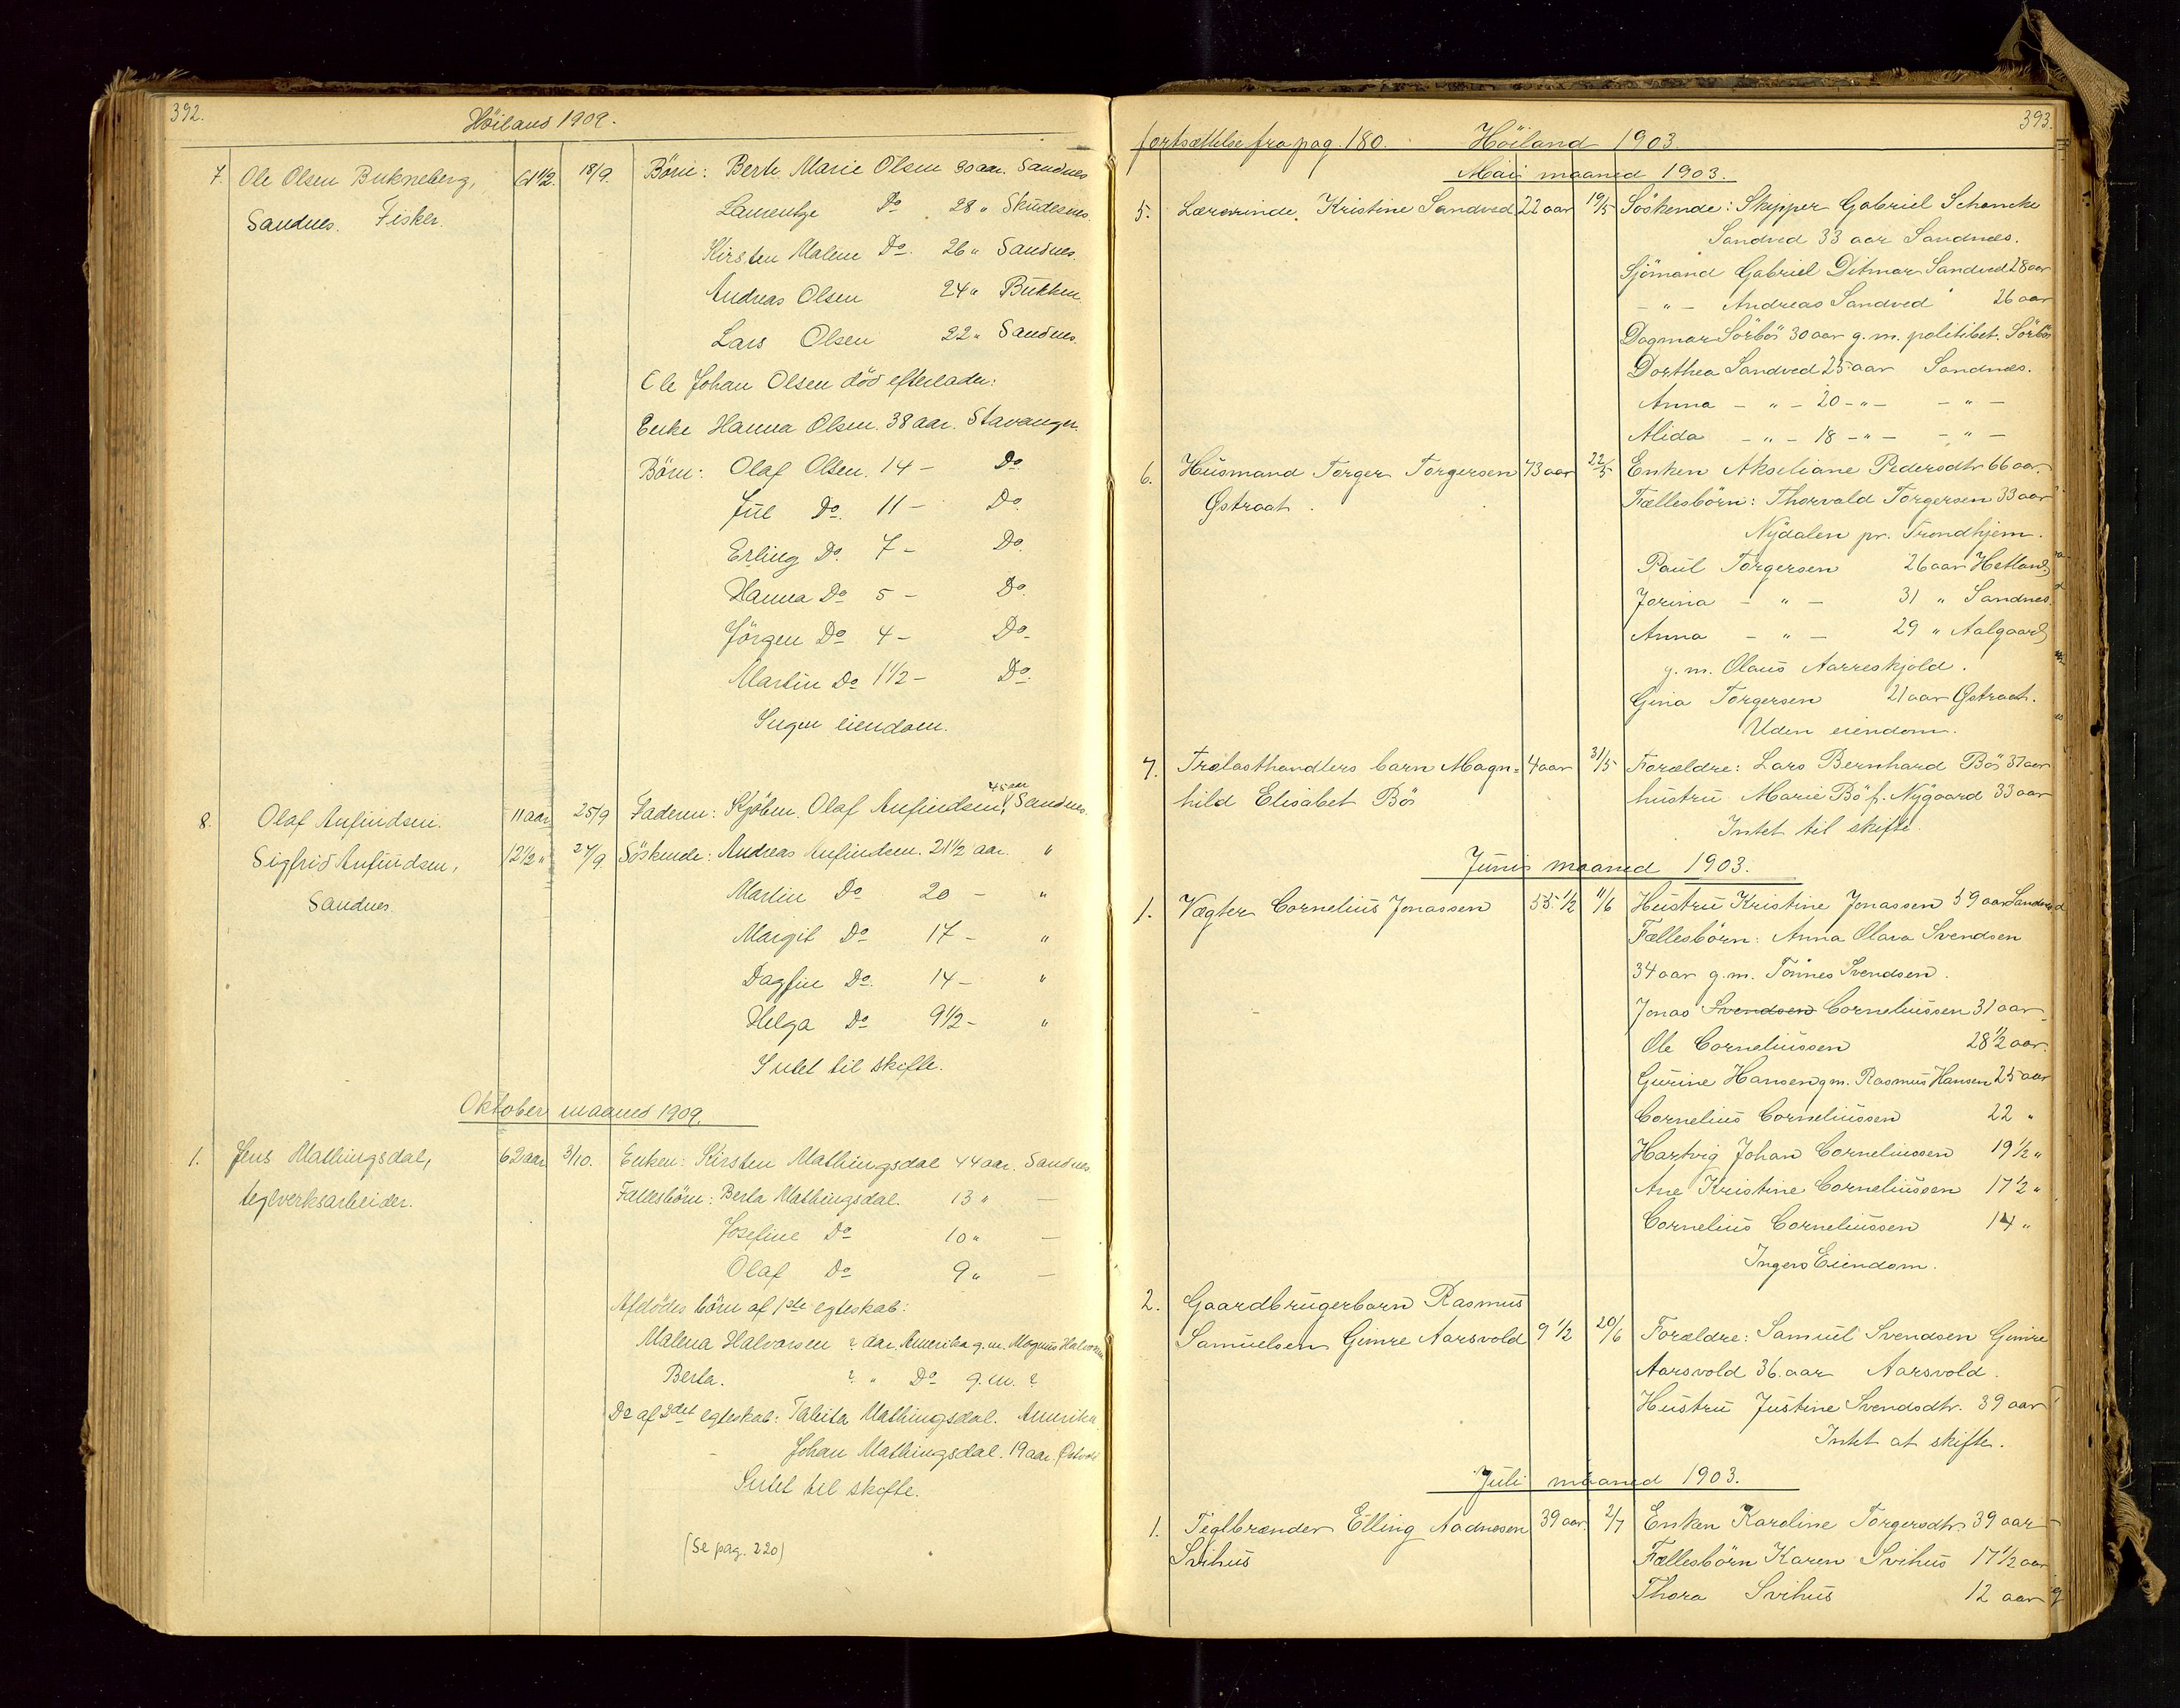 392.
Höiland 1909.
7. Ole Olsen Bukneberg, 61 1/2. 18/9. Börn: Berte Marie Olsen 30 aar. Sandnes
Sandnes. Fisker. Laurentze Do 28 „ Skudesnes.
Kirsten Malene Do. 26 „ Sandnes.
Andreas Olsen 24 „ Bukken.
Lars Olsen 22 „ Sandnes.
Ole Johan Olsen död efterlader:
Enke Hanna Olsen. 38 aar. Stavanger.
Börn: Olaf Olsen. 14 – Do
Jul Do. 11 – Do.
Erling Do. 7 – Do.
Hanna Do 5 – Do.
Jörgen Do 4 – Do.
Martin Do 1 1/2 – Do.
Ingen eiendom.
45 aar
8. Olaf Anfindsen. 11 aar 25/9 Faderen: Kjöbm. Olaf Anfindsen, Sandnes.
Sigfrid Anfindsen, 12 1/2 „ 27/9. Söskende: Andreas Anfindsen. 21 1/2 aar. „
Sandnes. Martin Do 20 – „
Margit Do 17 – „
Dagfin Do. 14 – „
Helga Do 9 1/2 – „
Intet til skifte.
Oktober maaned 1909.
1. Jens Mathingsdal, 62 aar 3/10. Enken: Kirsten Mathingsdal 44 aar. Sandnes
teglverksarbeider. Fællesbörn: Berta Mathingsdal. 13 „ —
Josefine Do 10 „ —
Olaf Do 9 „ —
Afdödes börn af 1ste egteskab:
Malena Halvorsen ? aar. Amerika g. m. Magnus Halvorsen
Berta. ? „ Do g. m. ?
Do af 3det egteskab: Tabita Mathingsdal. Amerika
– Johan Mathingsdal. 19 aar.
Intet til skifte.
(Se pag. 220)
393.
fortsættelse fra pag. 180. Höiland 1903.
Mai maaned 1903.
5. Lærerinde. Kristine Sandved 22 aar 19/5 Söskende: Skipper Gabriel Schancke
Sandved 33 aar Sandnes.
Sjömand Gabriel Ditmar Sandved 28 aar
– „ – Andreas Sandved 26 aar
Dagmar Sörbö 30 aar g. m. politibet. Sörbö
Dorthea Sandved 25 aar Sandnes.
Anna – „ – 20 – „ – – „ –
Alida – „ – 18 – „ – – „ –
6. Husmand Torger Torgersen 73 aar 22/5 Enken Akseliane Pedersdtr 66 aar.
Østraat. Fællesbörn: Thorvald Torgersen 33 aar
Nydalen pr. Trondhjem.
Paul Torgersen 26 aar Hetland
Jorina – „ – 31 „ Sandnes.
Anna – „ – 29 „ Aalgaard
g. m. Olaus Aarreskjold.
Gina Torgersen 21 aar Østraat.
Uden eiendom.
7. Trælasthandlers barn Magn= 4 aar 31/5 Forældre: Lars Bernhard Bö 37 aar
hild Elisabet Bö hustru Marie Bö f. Nygaard 33 aar
Intet til skifte.
Juni maaned 1903.
1. Vægter Cornelius Jonassen 55 1/2 11/6 Hustru Kristine Jonassen 59 aar Sandnes
Fællesbörn: Anna Olava Svendsen
34 aar g. m. Tönnes Svendsen.
Jonas Svendsen Corneliussen 31 aar
Ole Corneliussen 28 1/2 aar.
Gurine Hansen g. m. Rasmus Hansen 25 aar
Cornelius Corneliussen 22 „
Hartvig Johan Corneliussen 19 1/2 „
Ane Kristine Corneliussen 17 1/2 „
Cornelius Corneliussen 14 „
Ingen Eiendom.
2. Gaardbrugerbarn Rasmus
Samuelsen Gimre Aarsvold 9 1/2 20/6 Forældre: Samuel Svendsen Gimre
Aarsvold 36 aar Aarsvold.
Hustru Justine Svendsdtr. 39 aar
Intet at skifte.
Juli maaned 1903.
1. Teglbrænder Elling Aadnesen 39 aar. 2/7 Enken Karoline Torgersdtr. 39 aar
Svihus Fællesbörn Karen Svihus 17 1/2 aar
Thora Svihus 12 aar